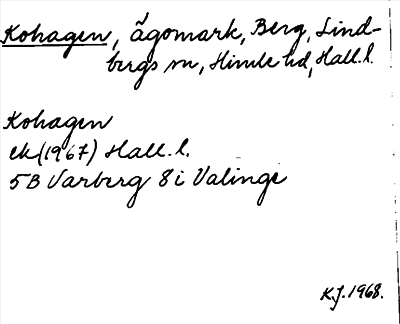 Kohagen, ägomark, Berg, Lind-
bergs sn, Himle hd, Hall. l.
Kohagen
ek (1967) Hall. l.
5B Varberg 8i Valinge
K.J. 1968.